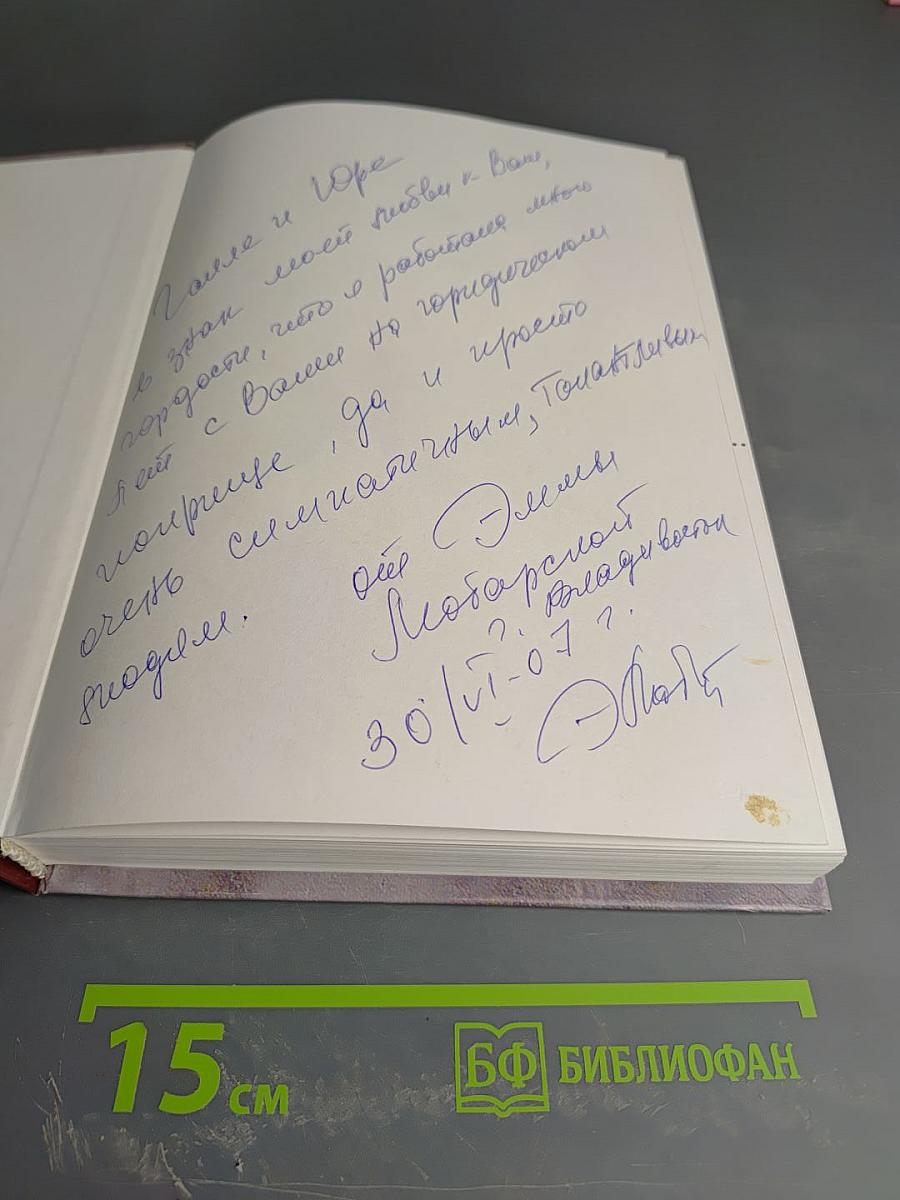 Галле и Юре
в знак моей любви к Вам,
гордости, что я работала много
лет с Вами на юридическом
поприще, да и просто
очень симпатичным, Талантливым
людям.
от Эммы
Мотарской
г. Владивосток
30/VI-07 г.
15 см
БФ БИБЛИОФАН